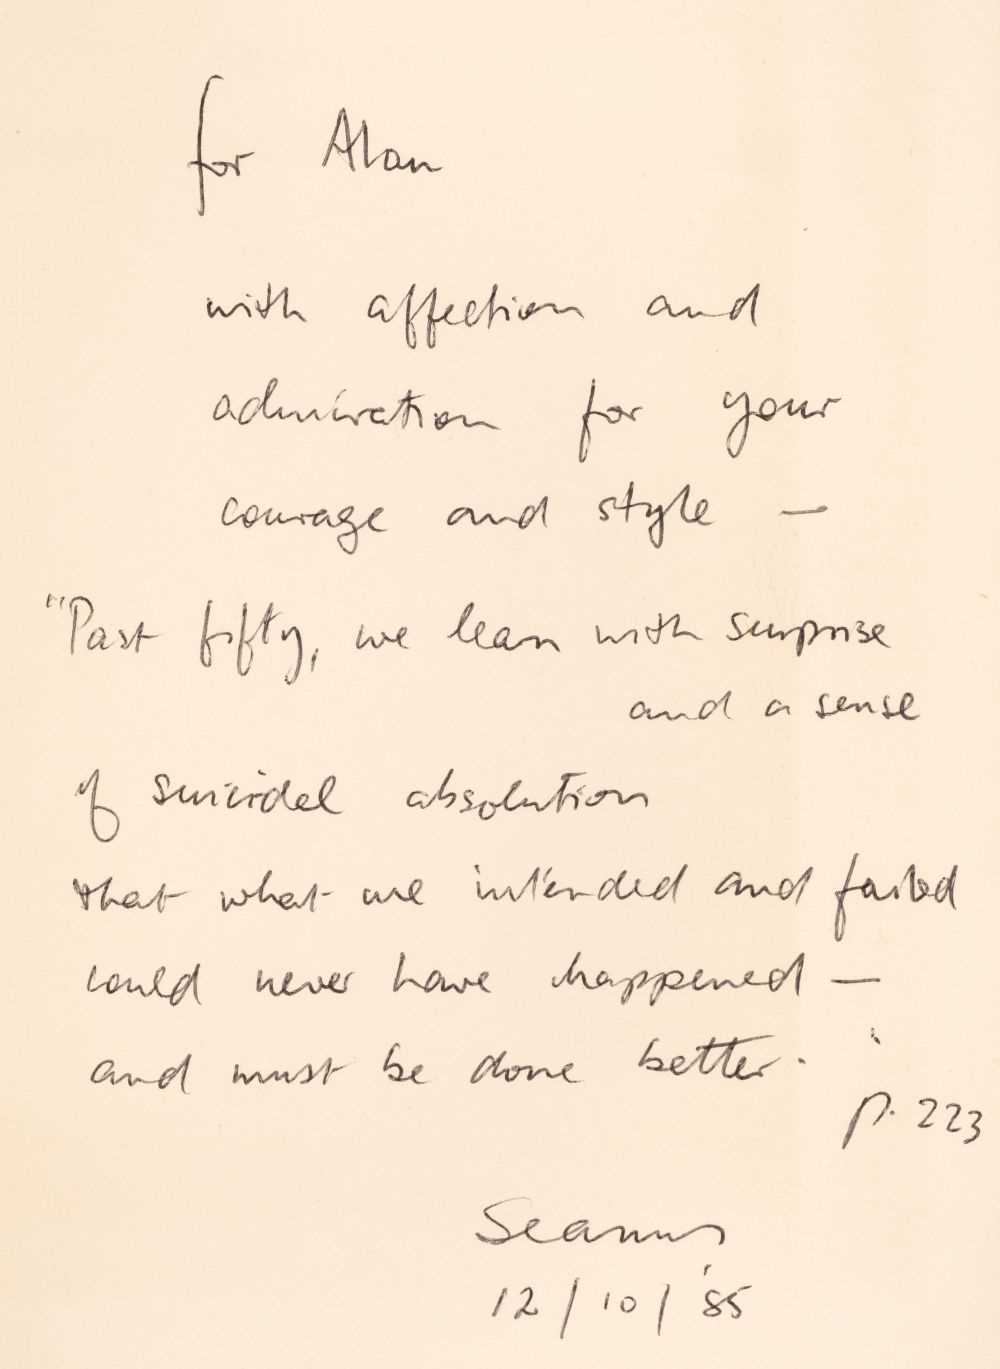 for Alan
with affection and
admiration for your
courage and style —
"Past fifty, we learn with surprise
and a sense
of suicidal absolution
that what we intended and failed
could never have happened —
and must be done better."
p. 223
Seamus
12/10/'85